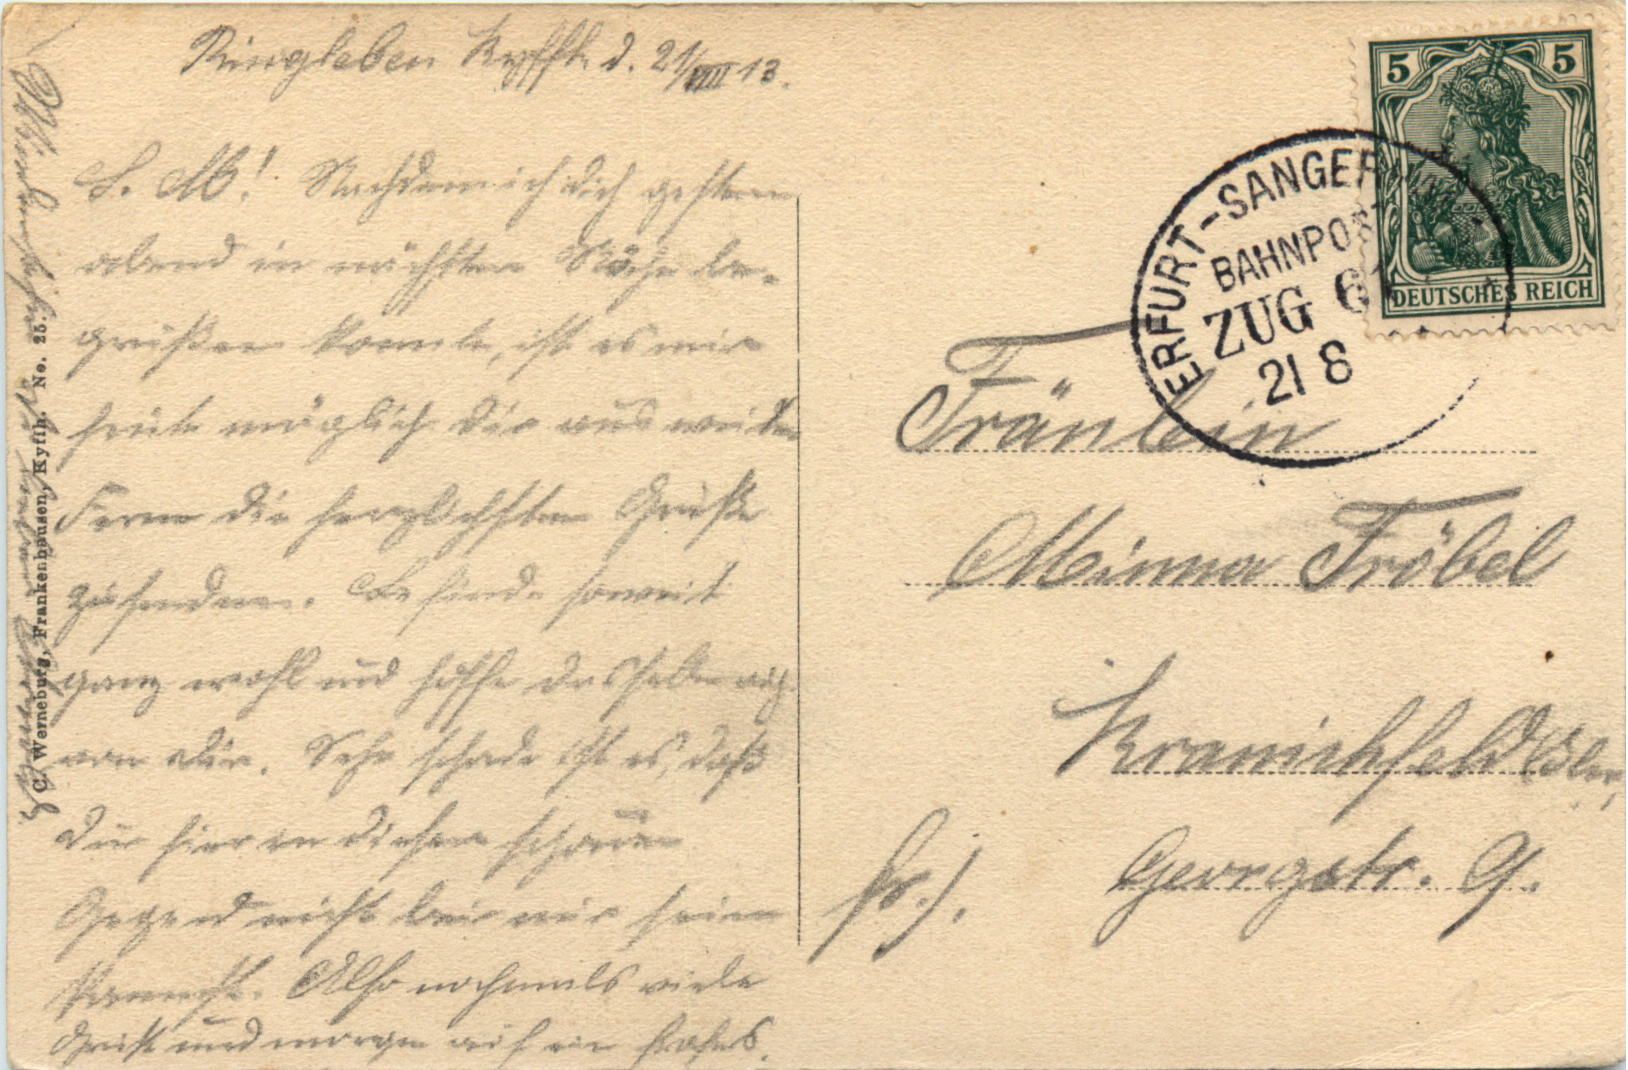 Ringleben Kyffh. d. 21/VIII 13.
L. M! Nachdem ich dich gestern
abend in nächster Nähe be-
grüßen konnte, ist es mir
heute möglich dir aus weiter
Ferne die herzlichsten Grüße
zusenden. Befinde soweit
ganz wohl und hoffe dasselbe auch
von dir. Sehr schade ist es, daß
du hier in dieser schönen
Gegend nicht bei mir sein
kannst. Also nochmals viele
Grüße und morgen auf ein frohes
Wiedersehen
C. Werneburg, Frankenhausen, Kyffh. No. 25.
5 5
DEUTSCHES REICH
ERFURT-SANGER
BAHNPOST
ZUG 6
21 8
Fräulein
Minna Fröbel
Kranichfeld
Georgstr. 9.